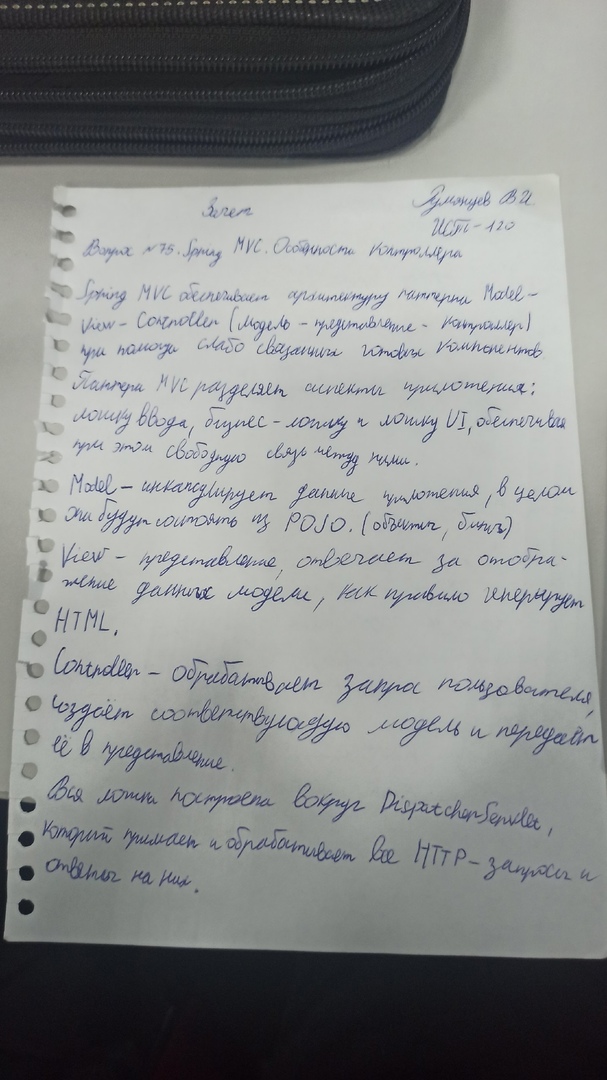 Зачет
Румянцев В.И
ИСТ-120
Вопрос №75. Spring MVC. Особенности контроллера
Spring MVC обеспечивает архитектуру паттерна Model-
View-Controller (модель-представление-контроллер)
при помощи слабо связанных готовых компонентов
Паттерн MVC разделяет аспекты приложения:
логику ввода, бизнес-логику и логику UI, обеспечивая
при этом свободную связь между ними.
Model - инкапсулирует данные приложения, в целом
они будут состоять из POJO. (объекты, бины)
View - представление, отвечает за отобра-
жение данных модели, как правило генерирует
HTML.
Controller - обрабатывает запрос пользователя,
создаёт соответствующую модель и передаёт
её в представление.
Вся логика построена вокруг DispatcherServlet,
который принимает и обрабатывает все HTTP-запросы и
ответы на них.